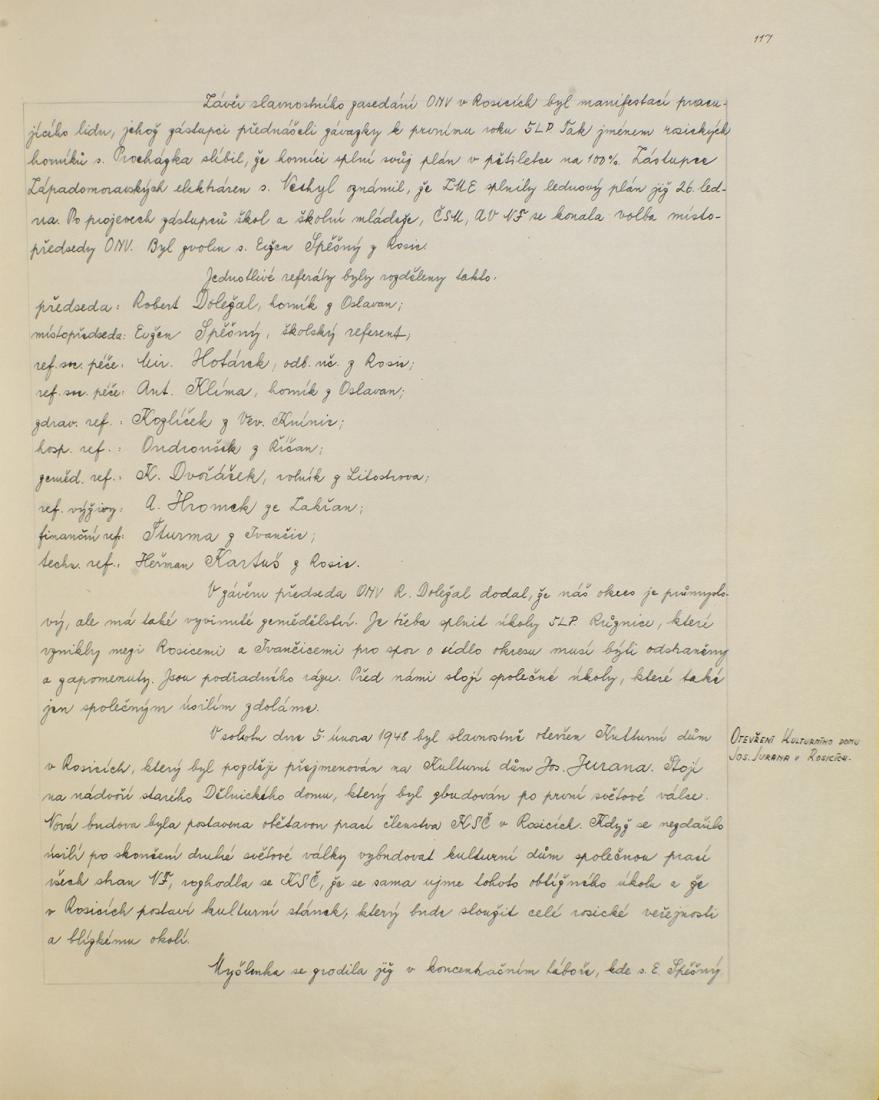 117
Závěr slavnostního zasedání ONV v Rosicích byl manifestací pracu-
jícího lidu, jehož zástupci přednášeli závazky k prvnímu roku 5LP. Tak jménem rosických
horníků s. Procházka slíbil, že horníci splní svůj plán v pětiletce na 100%. Zástupce
Západomoravských elektráren s. Vechyl oznámil, že ZME splnily lednový plán již 26. led-
na. Po projevech zástupců škol a školní mládeže, ČSM, AV NF se konala volba místo-
předsedy ONV. Byl zvolen s. Evžen Spěšný z Rosic.
Jednotlivé referáty byly rozděleny takto:
předseda: Robert Doležal, horník z Oslavan;
místopředseda: Evžen Spěšný, školský referent;
ref. soc. péče: Mir. Hotárek, odb. uč. z Rosic;
ref. soc. péče: Ant. Klíma, horník z Oslavan;
zdrav. ref.: Kozlíček z Vev. Knínic;
hosp. ref.: Ondroušek z Říčan;
zeměd. ref.: K. Dvořáček, rolník z Litostrova;
ref. výživy: A. Hromek ze Zakřan;
finanční ref: Šturma z Ivančic;
techn. ref.: Heřman Kartuš z Rosic.
V závěru předseda ONV R. Doležal dodal, že náš okres je průmyslo-
vý, ale má také vyvinuté zemědělství. Je třeba splnit úkoly 5LP. Různice, které
vznikly mezi Rosicemi a Ivančicemi pro spor o sídlo okresu musí býti odstraněny
a zapomenuty. Jsou podřadného rázu. Před námi stojí společné úkoly, které také
jen společným úsilím zdoláme.
V sobotu dne 5. února 1948 byl slavnostně otevřen Kulturní dům
v Rosicích, který byl později přejmenován na Kulturní dům Jos. Jurana. Stojí
na nádvoří starého Dělnického domu, který byl zbudován po první světové válce.
Nová budova byla postavena obětavou prací členstva KSČ v Rosicích. Když se nezdařilo
úsilí po skončení druhé světové války vybudovat kulturní dům společnou prací
všech stran NF, rozhodla se KSČ, že se sama ujme tohoto obtížného úkolu a že
v Rosicích postaví kulturní stánek, který bude sloužit celé rosické veřejnosti
a blízkému okolí.
Myšlenka se zrodila již v koncentračním táboře, kde s. E. Spěšný
Otevření Kulturního domu
Jos. Jurana v Rosicích.